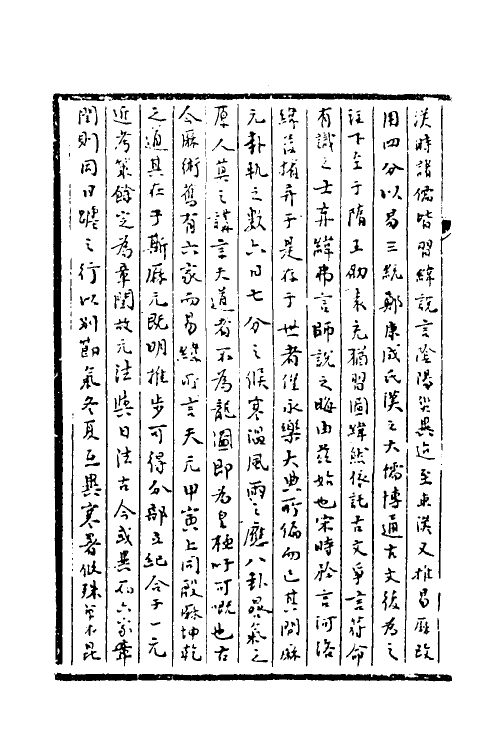 漢時諸儒皆習緯說言陰陽災異近至東漢又推易厤改
用四分以易三統鄭康成氏漢之大儒博通古文後為之
注下至于隋王劭袁充猶習圖緯然依託古文爭言符命
有識之士弃緯弗言師說之晦由茲始也宋時矜言河洛
緯益擯弃于是存于世者僅永樂大典所編而已其間厤
元卦軌之數六日七分之候寒溫風雨之應八卦氣之
原人莫之講言天道者不為龍圖即為皇極吁可嘅也古
今厤術舊有六家而易緯所言天元甲寅上同殷厤坤乾
之道其在于斯厤元既明推步可得分部立紀合于一元
近考策餘定為章閏故元法與日法古今或異而六家章
閏則同日躔之行以別節氣冬夏互異寒暑攸殊芾木昆